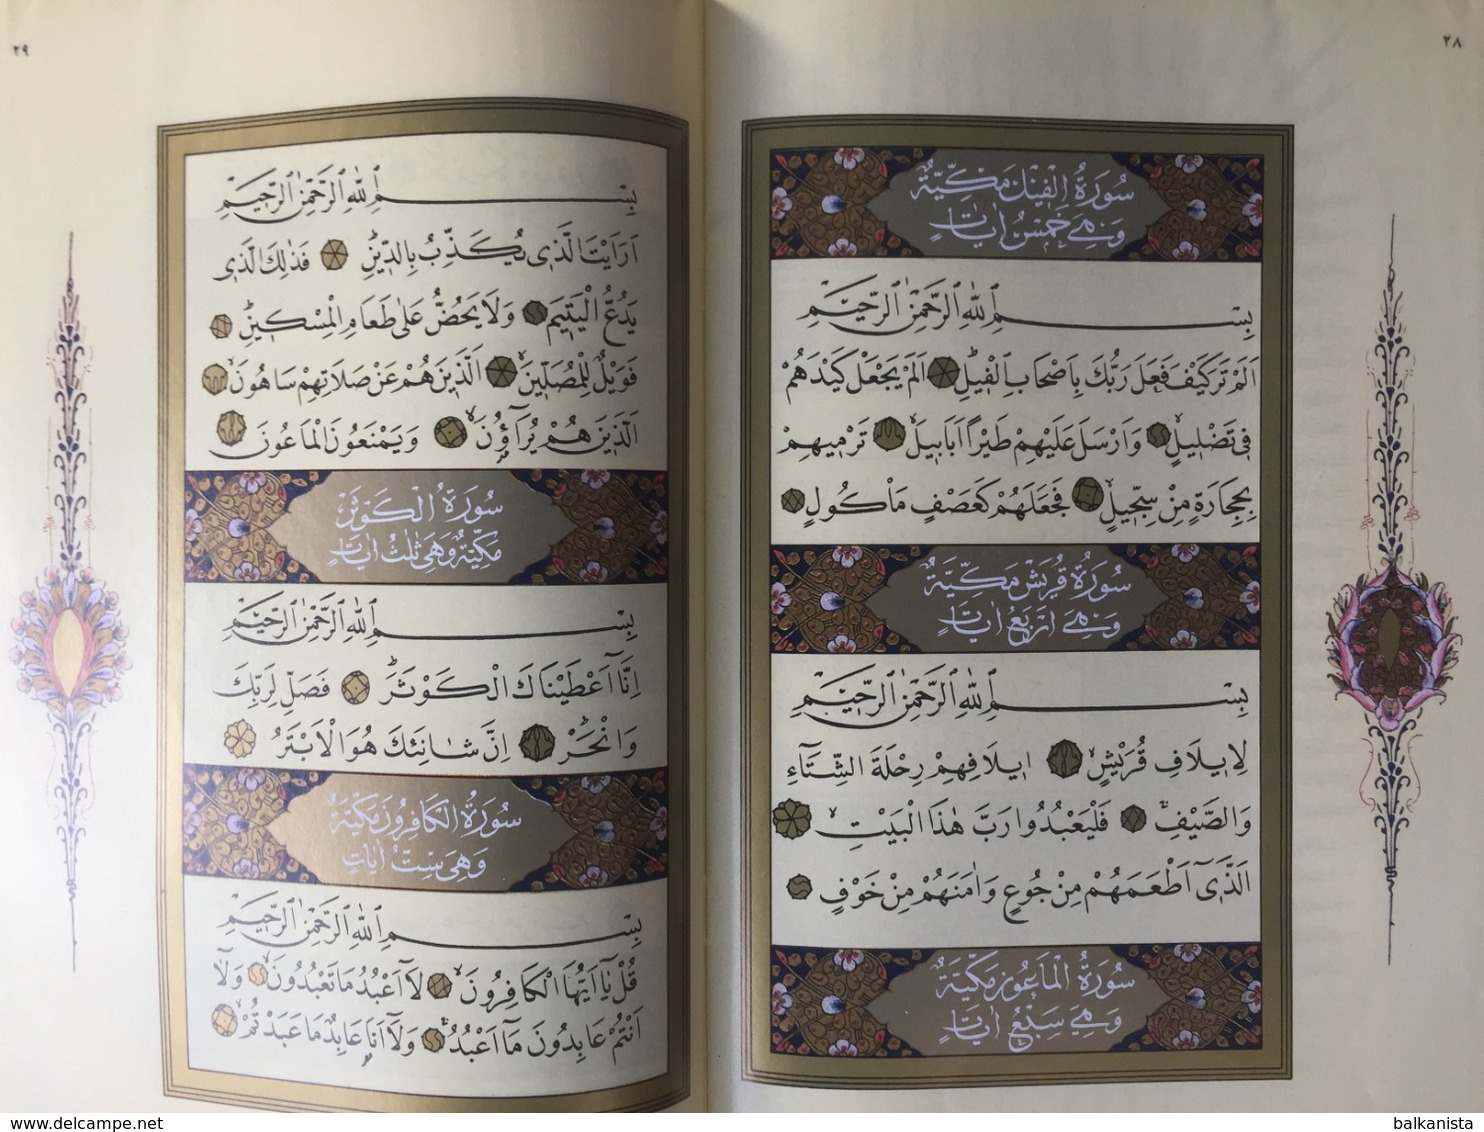 ٢٨
سُورَةُ الْفِيلِ مَكِّيَّةٌ
وَهِيَ خَمْسُ اٰيَاتٍ
بِسْمِ اللّٰهِ الرَّحْمٰنِ الرَّحِيمِ
اَلَمْ تَرَ كَيْفَ فَعَلَ رَبُّكَ بِاَصْحَابِ الْفِيلِ اَلَمْ يَجْعَلْ كَيْدَهُمْ
فِي تَضْلِيلٍ وَاَرْسَلَ عَلَيْهِمْ طَيْرًا اَبَابِيلَ تَرْمِيهِمْ
بِحِجَارَةٍ مِنْ سِجِّيلٍ فَجَعَلَهُمْ كَعَصْفٍ مَاْكُولٍ
سُورَةُ قُرَيْشٍ مَكِّيَّةٌ
وَهِيَ اَرْبَعُ اٰيَاتٍ
بِسْمِ اللّٰهِ الرَّحْمٰنِ الرَّحِيمِ
لِاِيلَافِ قُرَيْشٍ اِيلَافِهِمْ رِحْلَةَ الشِّتَآءِ
وَالصَّيْفِ فَلْيَعْبُدُوا رَبَّ هٰذَا الْبَيْتِ
اَلَّذِٓي اَطْعَمَهُمْ مِنْ جُوعٍ وَاٰمَنَهُمْ مِنْ خَوْفٍ
سُورَةُ الْمَاعُونِ مَكِّيَّةٌ
وَهِيَ سَبْعُ اٰيَاتٍ
٢٩
بِسْمِ اللّٰهِ الرَّحْمٰنِ الرَّحِيمِ
اَرَاَيْتَ الَّذِي يُكَذِّبُ بِالدِّينِ فَذٰلِكَ الَّذِي
يَدُعُّ الْيَتِيمَ وَلَا يَحُضُّ عَلٰى طَعَامِ الْمِسْكِينِ
فَوَيْلٌ لِلْمُصَلِّينَ اَلَّذِينَ هُمْ عَنْ صَلَاتِهِمْ سَاهُونَ
اَلَّذِينَ هُمْ يُرَآؤُنَ وَيَمْنَعُونَ الْمَاعُونَ
سُورَةُ الْكَوْثَرِ
مَكِّيَّةٌ وَهِيَ ثَلٰثُ اٰيَاتٍ
بِسْمِ اللّٰهِ الرَّحْمٰنِ الرَّحِيمِ
اِنَّٓا اَعْطَيْنَاكَ الْكَوْثَرَ فَصَلِّ لِرَبِّكَ
وَانْحَرْ اِنَّ شَانِئَكَ هُوَ الْاَبْتَرُ
سُورَةُ الْكَافِرُونَ مَكِّيَّةٌ
وَهِيَ سِتُّ اٰيَاتٍ
بِسْمِ اللّٰهِ الرَّحْمٰنِ الرَّحِيمِ
قُلْ يَٓا اَيُّهَا الْكَافِرُونَ لَٓا اَعْبُدُ مَا تَعْبُدُونَ وَلَٓا
اَنْتُمْ عَابِدُونَ مَٓا اَعْبُدُ وَلَٓا اَنَا عَابِدٌ مَا عَبَدْتُمْ
www.delcampe.net
balkanista